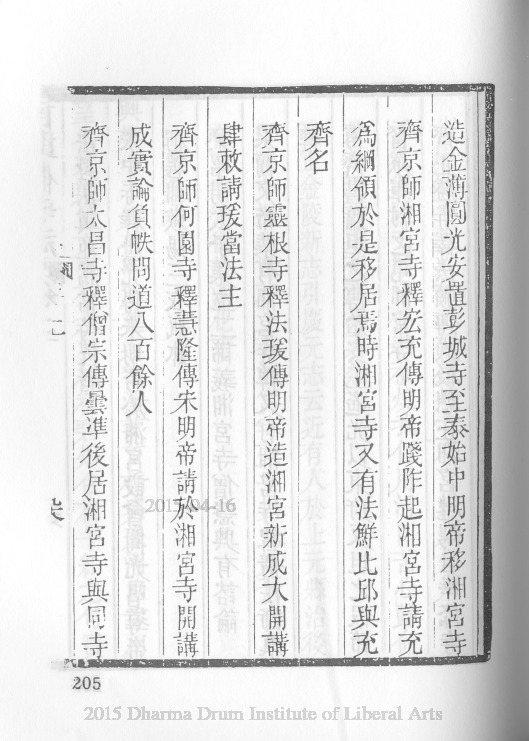 造金薄圓光安置彭城寺至泰始中明帝移湘宮寺
齊京師湘宮寺釋宏充傳明帝踐阼起湘宮寺請充
爲綱領於是移居焉時湘宮寺又有法鮮比邱與充
齊名
齊京師靈根寺釋法瑗傳明帝造湘宮新成大開講
肆敕請瑗當法主
齊京師何園寺釋慧隆傳宋明帝請於湘宮寺開講
成實論負帙問道八百餘人
齊京師太昌寺釋僧宗傳曇準後居湘宮寺與同寺
205
2015-04-16
2015 Dharma Drum Institute of Liberal Arts